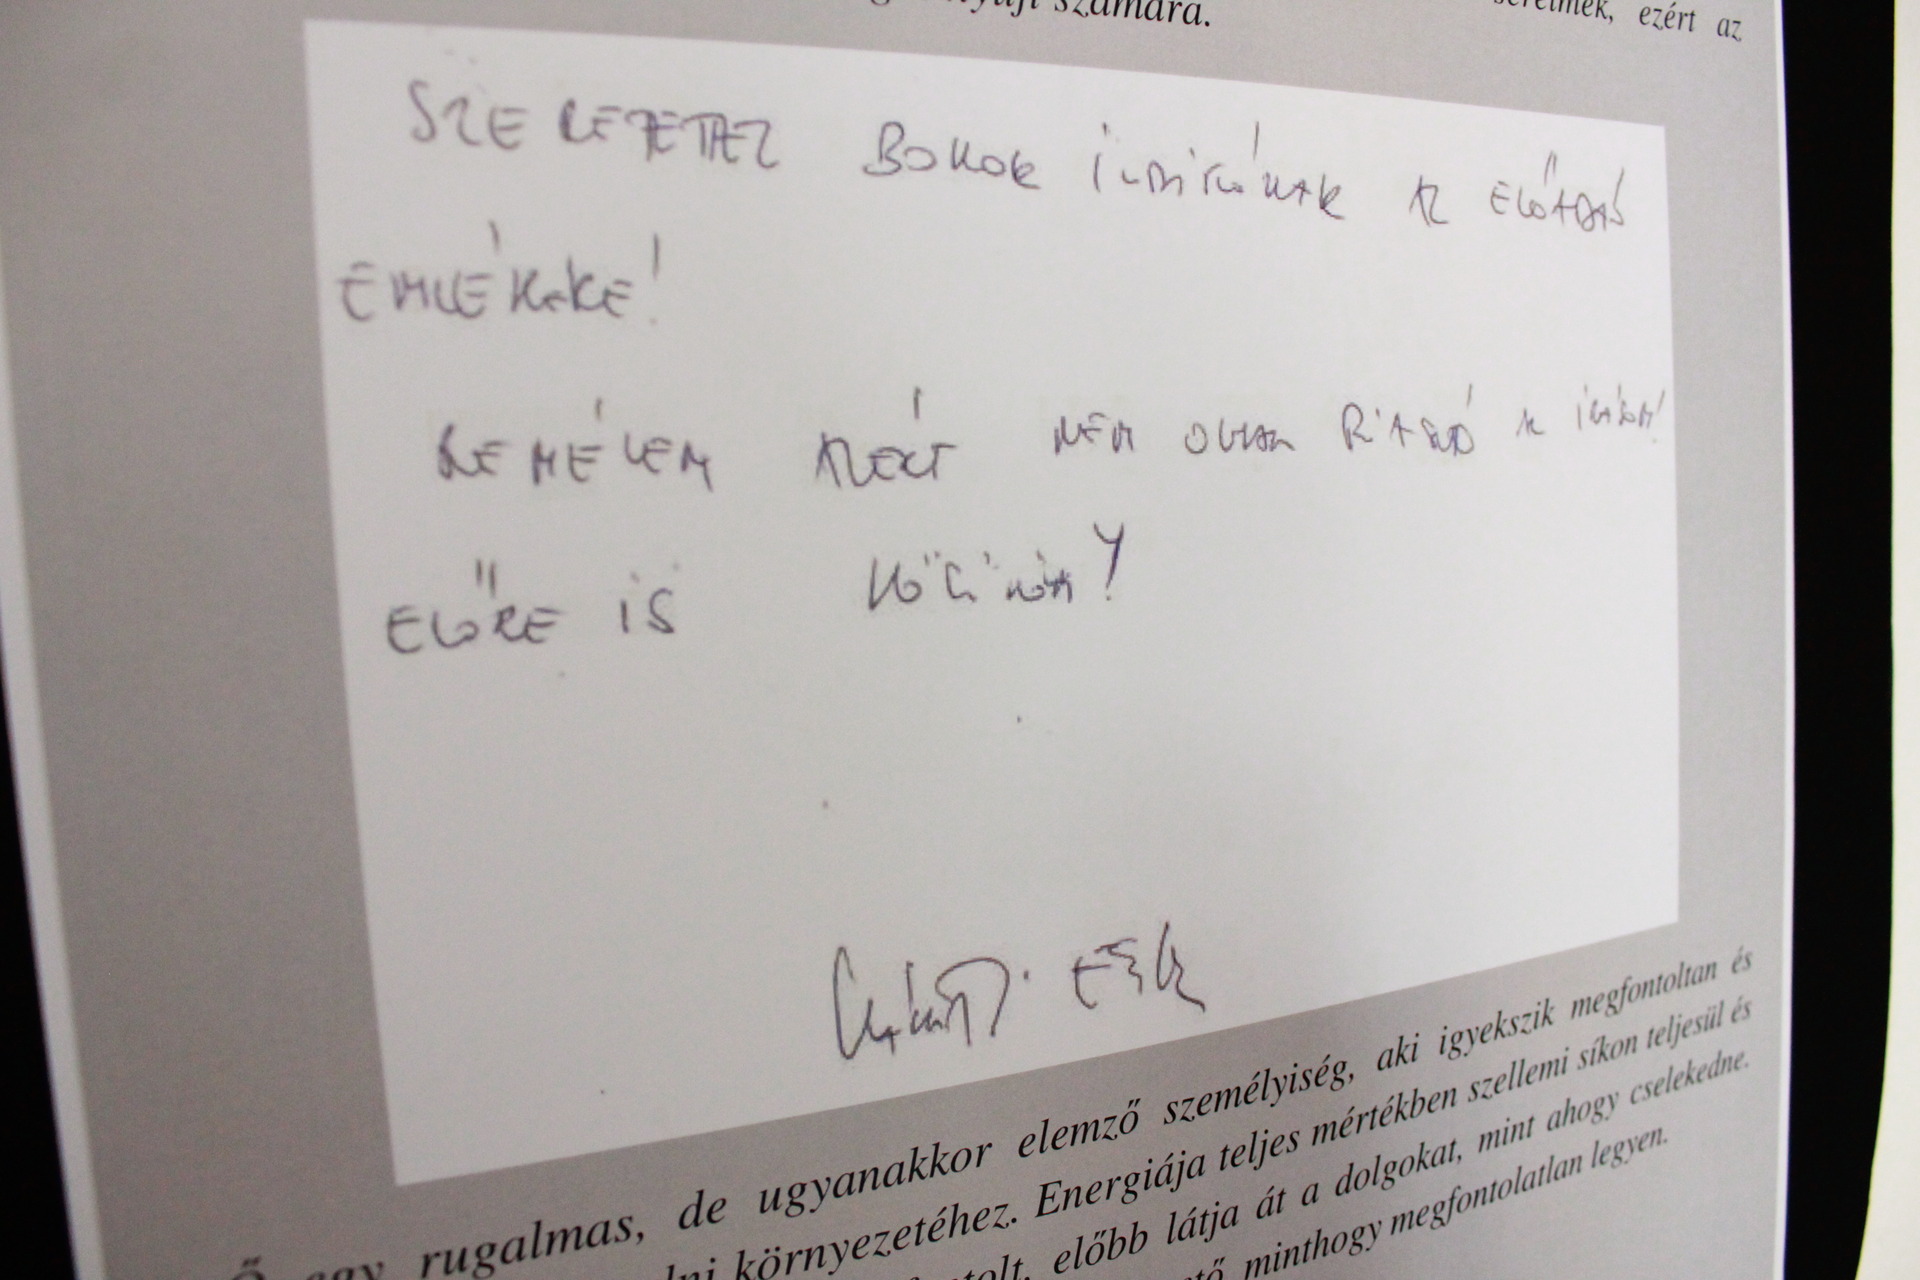 számára.
ezért az
SZERETETTEL BOKOR ILDIKÓNAK AZ ELŐADÁS
EMLÉKÉRE!
REMÉLEM AZÉRT NEM OLYAN RIASZTÓ AZ ÍRÁSOM!
ELŐRE IS KÖSZÖNÖM!
egy rugalmas, de ugyanakkor elemző személyiség, aki igyekszik megfontoltan és
környezetéhez. Energiája teljes mértékben szellemi síkon teljesül és
előbb látja át a dolgokat, mint ahogy cselekedne.
minthogy megfontolatlan legyen.